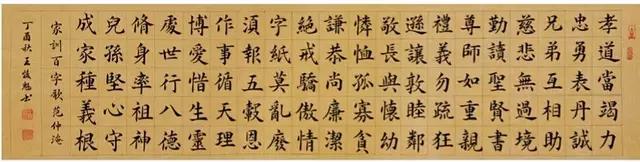 孝道當竭力
忠勇表丹誠
兄弟互相助
慈悲無過境
勤讀聖賢書
尊師如重親
禮義勿疏狂
遜讓敦睦鄰
敬長與懷幼
憐恤孤寡貧
謙恭尚廉潔
絕戒驕傲情
字紙莫亂廢
湏報五穀恩
作事循天理
博愛惜生靈
處世行八德
脩身率祖神
兒孫堅心守
成家種義根
家訓百字歌 范仲淹
丁酉秋 王